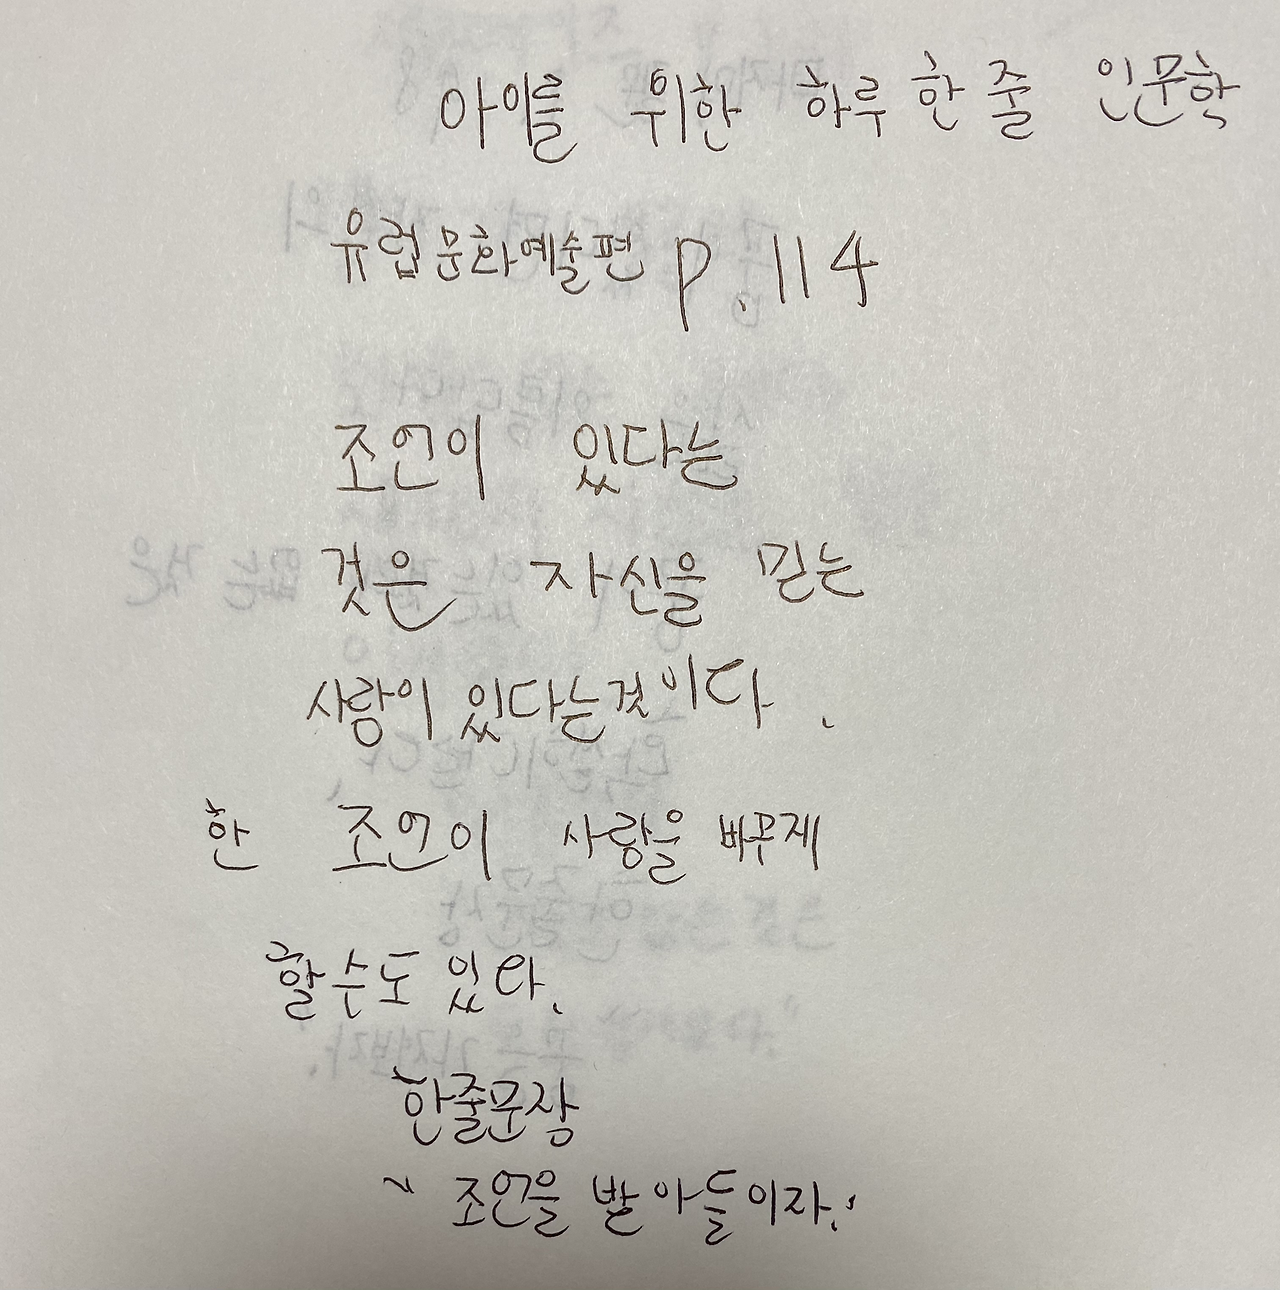 아이를 위한 하루 한 줄 인문학
유럽문화예술편 p.114
조언이 있다는
것은 자신을 믿는
사랑이 있다는것이다.
한 조언이 사랑을 바꾸게
할수도 있다.
한줄문장
"조언을 받아들이자."